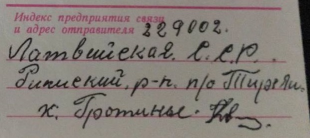 Индекс предприятия связи
и адрес отправителя 229002.
Латвийская. С.С.Р.
Рижский. р-н. п/о Тирели.
х. Гротиньс.